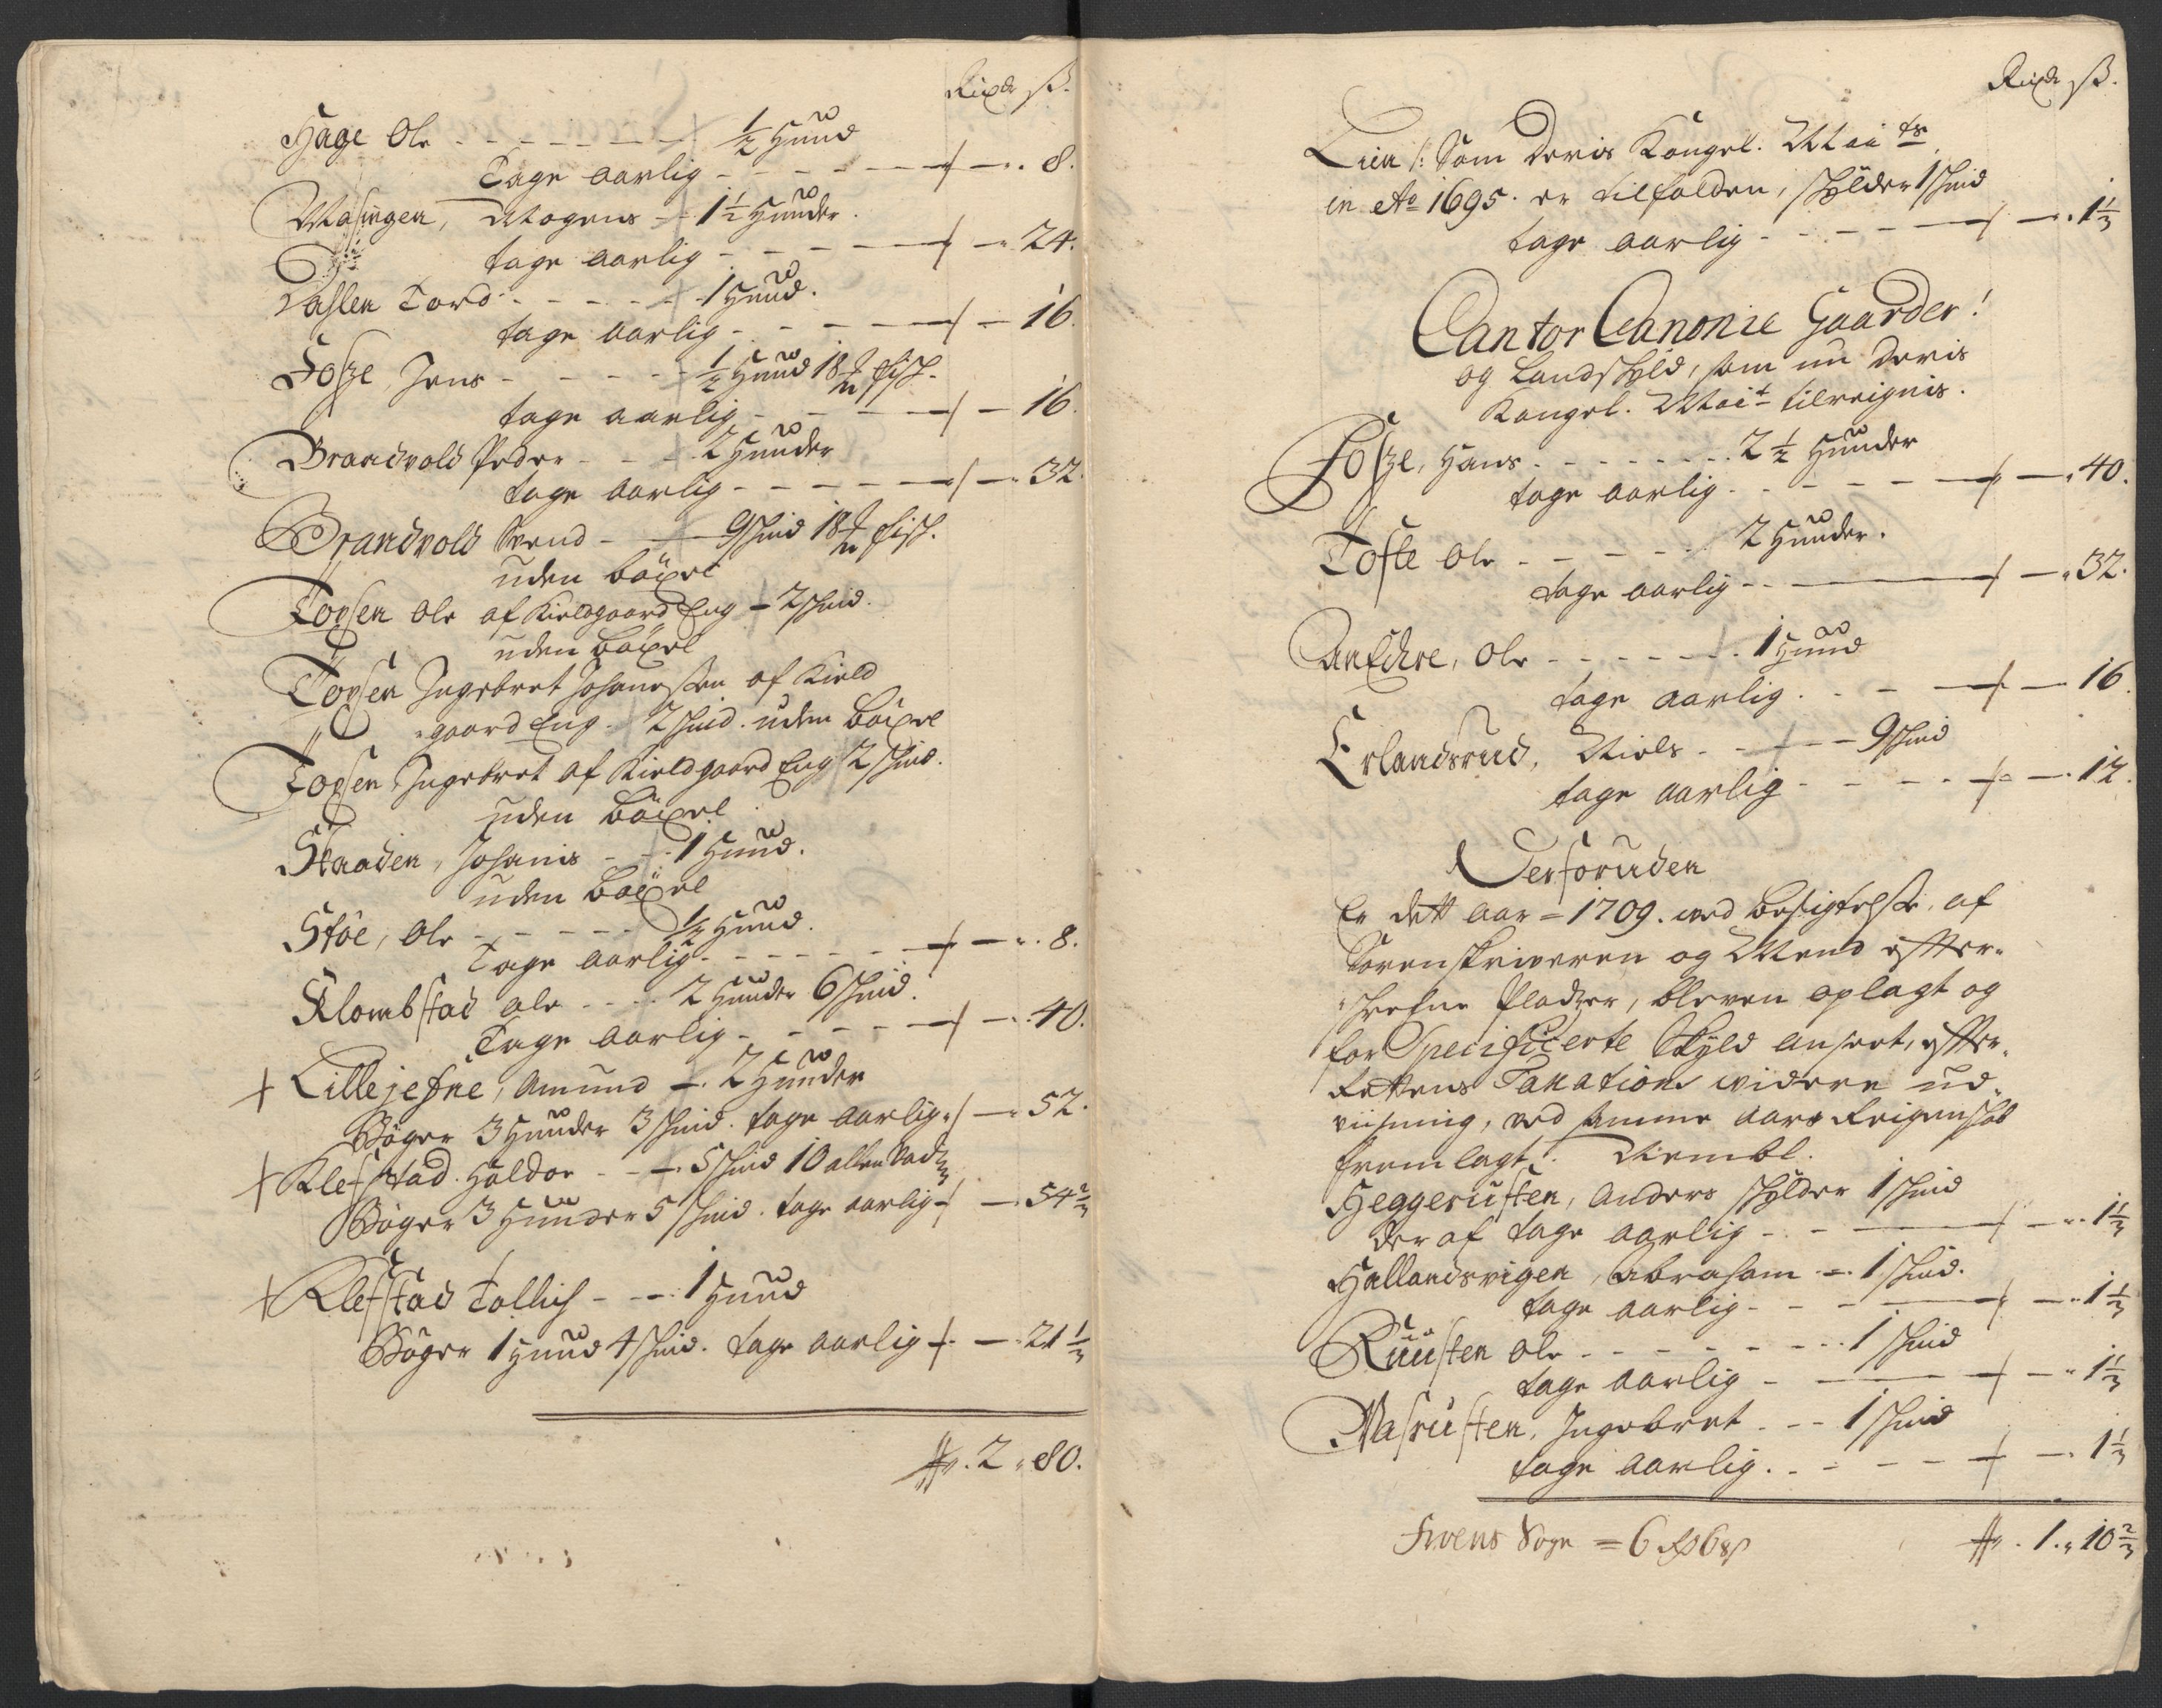 Rixdr ß.
Hage Ole - - - - - ½ Hund
Tage aarlig - - - - 8.
Masingen, Mogens - 1½ Hunder.
tage aarlig - - - - 24.
Tord - - - - - 1 Hund.
tage aarlig - - - - 16.
Fosze Jens - - - - ½ Hund 18 fisk.
tage aarlig - - - - 16.
Brandvold Peder - - - 2 Hunder
tage aarlig - - - - - 32.
Brandvold Svend - - 9 skind 18 fisk.
uden böxel
Tofsen Ole af Kieldgaard Eng - 2 skind.
uden böxel
Tofsen Ingebret Johansen af Kield
gaard Eng. 2 skind. uden böxel
Tofsen Ingebret af Kieldgaard Eng 2 skind.
uden böxel
Staaden, Johanis - - 1 Hund.
uden böxel
Stöe, Ole - - - - - ½ Hund.
Tage aarlig - - - - - 8.
Klombstad Ole - - - 2 Hunder 6 skind.
Tage aarlig - - - - - 40.
+ Lillejefne, Amund - 2 Hunder
Böger 3 Hunder 3 skind. tage aarlig - 52.
+ Klefstad Haldor - - 5 skind 10 allen Vad
Böger 3 Hunder 5 skind. tage aarlig - 54⅔
+ Klefstad Tollich - - 1 Hund
Böger 1 Hund 4 skind. tage aarlig - 21⅓
2 „ 80.
Rixdr ß.
Lien /: Som Deris Kongel. Maits
in Ao 1695. er tilfalden, skylder 1 skind
tage aarlig - - - - - 1⅓
Cantor Canonie Gaarder!
og Landskyld, som nu Deris
Kongel. Mait tilreignis.
Fosze, Hans - - - - - 2½ Hunder
tage aarlig - - - - - 40.
Tofte Ole - - - - - 2 Hunder.
tage aarlig - - - 32.
Ole - - - - - 1 Hund
tage aarlig - - - - 16.
Erlandsrud, Niels - - - 9 skind
tage aarlig - - - - - 12.
Desforuden
Er dett aar - 1709. ved besigtelsse, af
Sorenskriveren og Mend efter-
skrefne Pladzer, bleven oplagt og
for Specificerte Skyld ansaet, efter
Rettens Taxations videre ud-
viisning, ved samme aars Reigenskab
fremlagt. Nembl.
Heggerusten, Anders skylder 1 skind
der af tage aarlig - - 1⅓
Hallandsvigen, Abraham - 1 skind.
tage aarlig - - - - 1⅓
Ruusten Ole - - - - - 1 skind
tage aarlig - - - 1⅓
Nasrusten, Ingebret - - 1 skind
tage aarlig - - - - 1⅓
Sogn = 6
1. „ 10⅔